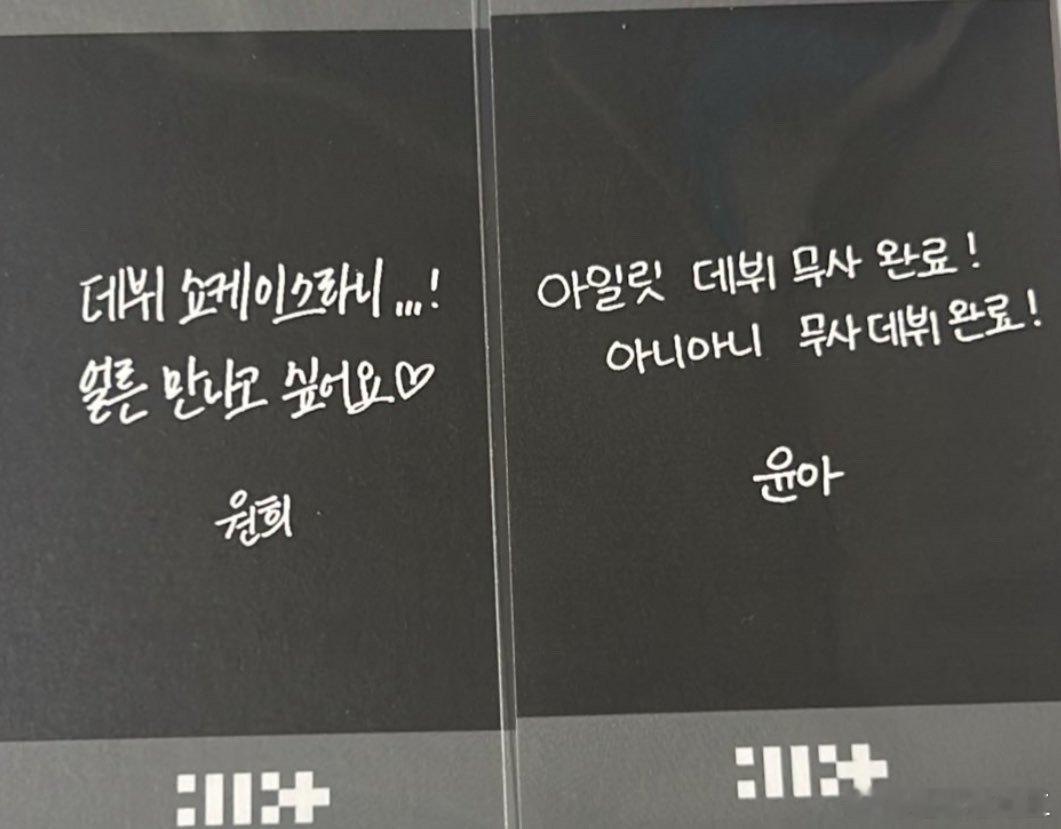 데뷔 쇼케이스라니...!
얼른 만나고 싶어요♡
원희
아일릿 데뷔 무사 완료!
아니아니 무사 데뷔 완료!
윤아